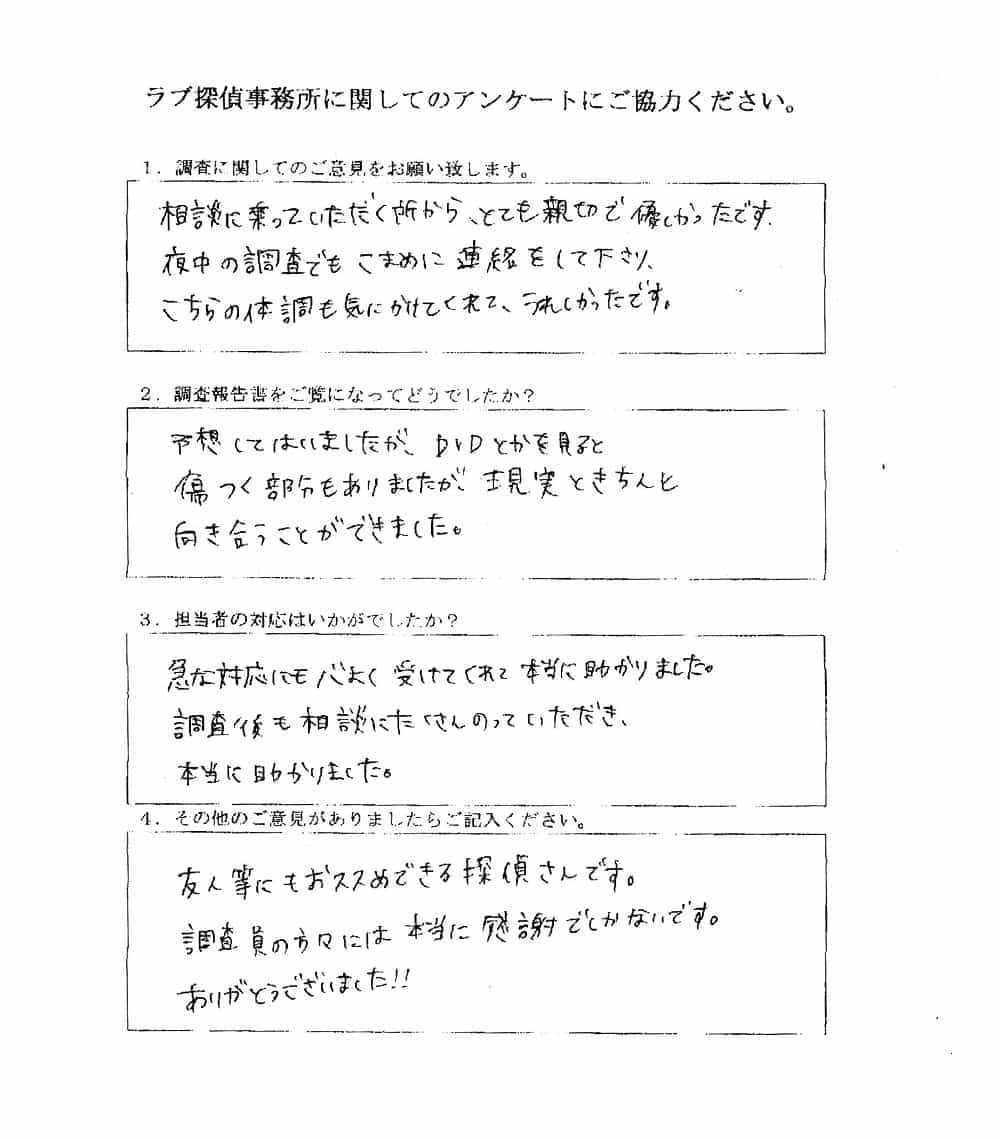 ラブ探偵事務所に関してのアンケートにご協力ください。
1．調査に関してのご意見をお願い致します。
相談に乗っていただく所から、とても親切で優しかったです。
夜中の調査でもこまめに連絡をして下さり、
こちらの体調も気にかけてくれて、うれしかったです。
2．調査報告書をご覧になってどうでしたか？
予想してはいましたが、DVDとかを見ると
傷つく部分もありましたが、現実ときちんと
向き合うことができました。
3．担当者の対応はいかがでしたか？
急な対応にも心よく受けてくれて本当に助かりました。
調査後も相談にたくさんのっていただき、
本当に助かりました。
4．その他のご意見がありましたらご記入ください。
友人等にもおススめできる探偵さんです。
調査員の方々には本当に感謝でしかないです。
ありがとうございました!!